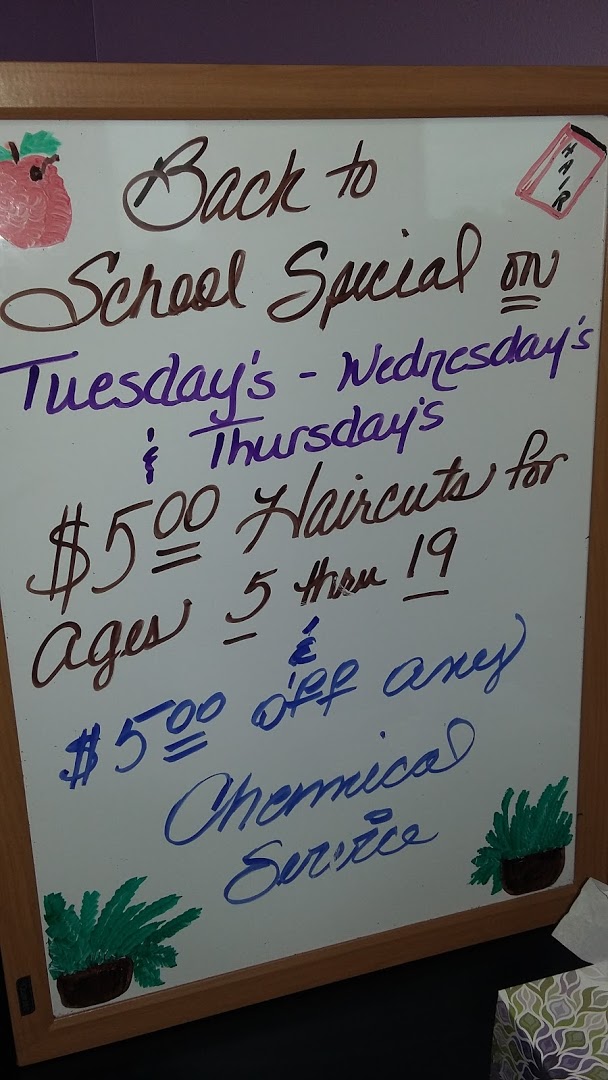 HAIR
Back to
School Special on
Tuesday's - Wednesday's
& Thursday's
$5.00 Haircuts for
ages 5 thru 19
&
$5.00 off any
Chemical
Service